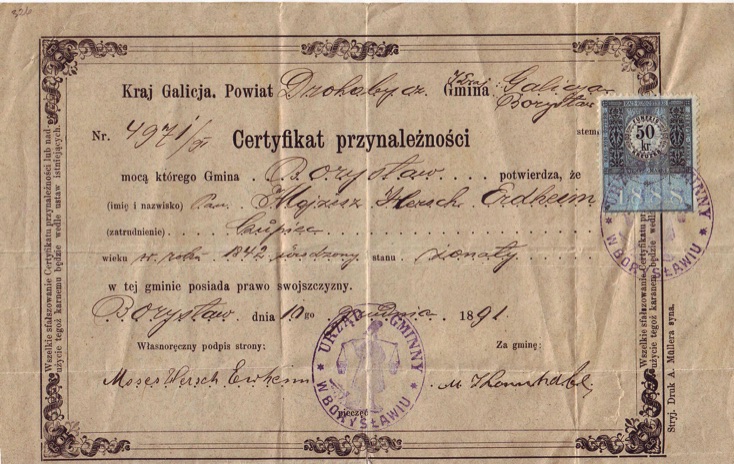 326
Kraj Galicja. Powiat Drohobycz. Gmina Borysław
Nr. 4971/91 Certyfikat przynależności
mocą którego Gmina Borysław potwierdza, że
(imię i nazwisko) Pan Mojżesz Hersch Erdheim
(zatrudnienie) kupiec
wieku w roku 1842 urodzony stanu żonaty
w tej gminie posiada prawo swojszczyzny.
Borysław dnia 10go grudnia 1891.
Własnoręczny podpis strony: Za gminę:
Moses Hersch Erdheim M
pieczęć
stem
50
kr
1888
URZĄD GMINNY
W BORYSŁAWIU
URZĄD GMINNY
W BORYSŁAWIU
Wszelkie sfałszowanie Certyfikatu przynależności lub nad-
użycie tegoż karanem będzie wedle ustaw istniejących.
Wszelkie sfałszowanie Certyfikatu
użycie tegoż karanem będzie wedle
Stryj. Druk A. Müllera syna.